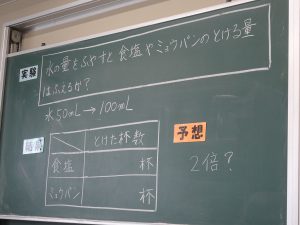 実験
水の量をふやすと食塩やミョウバンのとける量
はふえるか?
水50mL→100mL
結果
とけた杯数
食塩 杯
ミョウバン 杯
予想
2倍?